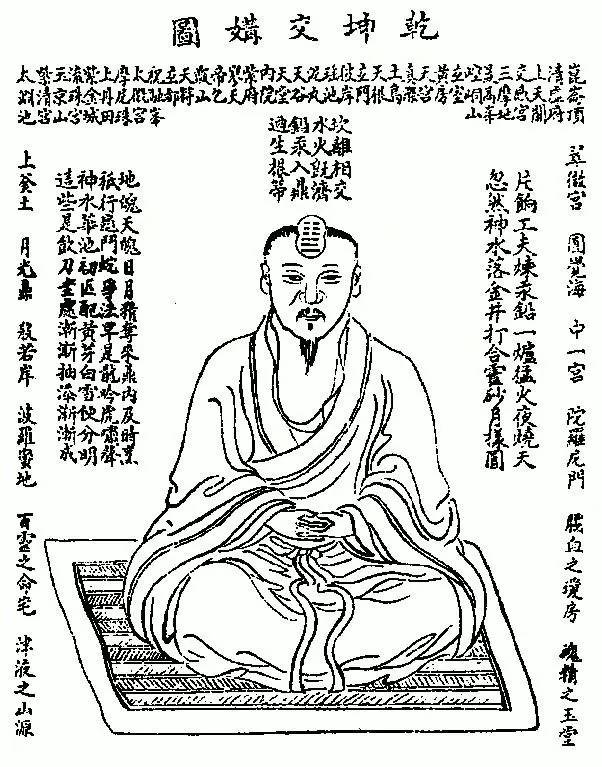 乾坤交媾圖
崑崙頂
清虛府
上天關
交感宮
三摩地
最高峯
崆峒山
玄室
黃房
天宮
真際
上島
天根
玄門
彼岸
瑤池
泥丸
天谷
天堂
內院
紫府
寥天
帝乙
甑山
天符
玄都
祝融峯
太微宮
摩尼珠
上丹田
紫金城
流珠宮
玉京山
紫清宮
太淵池
坎離相交
水火既濟
鉛汞入鼎
適生根蒂
翠微宮 圓覺海 中一宮 陀羅尼門 腦血之瓊房 魂精之玉堂
片餉工夫煉汞鉛一爐猛火夜燒天
忽然神水落金井打合靈砂月樣圓
地魄天魂日月精奪來鼎內及時烹
祇行龜鬥蛇爭法早是龍吟虎嘯聲
神水華池初匹配黃芽白雪便分明
這些是飲刀圭處漸漸抽添漸漸成
上釜土 月光鼎 般若岸 波羅蜜地 百靈之命宅 津液之山源